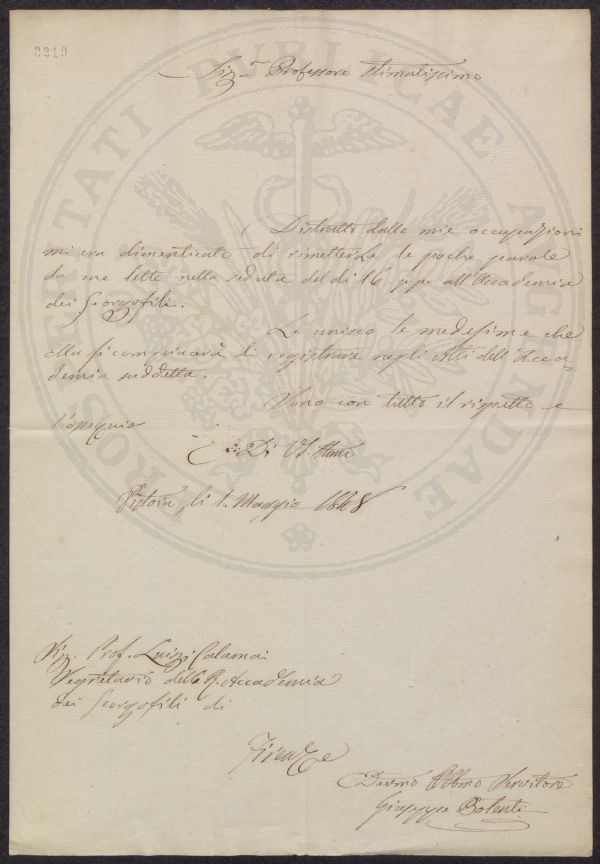 2219
Sig.r Professore Stimatissimo
Distratto dalle mie occupazioni
mi era dimenticato di rimetterle le poche parole
da me lette nella seduta del dì 16 p.p. all'Accademia
dei Georgofili.
Le unisco le medesime che
Ella si compiacerà di registrare negli Atti dell'Acca-
demia suddetta.
Sono con tutto il rispetto e
l'ossequio
Di VS. Illma
li 1. Maggio 1848
Sig. Prof. Luigi Calamai
Segretario della R. Accademia
dei Georgofili di
Firenze
Devmo Obbmo Servitore
Giuseppe
PROSPERITATI PUBLICAE AUGENDAE